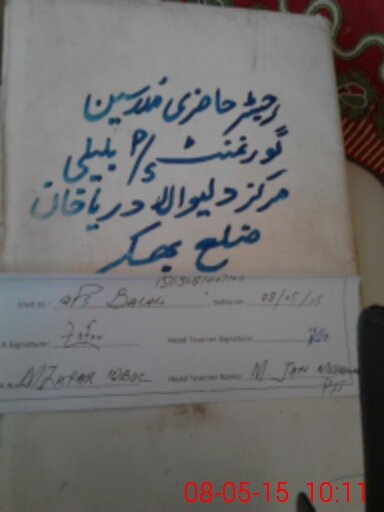 رجسٹر حاضری مدرسین
گورنمنٹ P/S بلیلی
مرکز دلیوالا دریاخان
ضلع بھکر
Visit to: GPS Balili Today on 08/05/15
Signature: Head Teacher Signature:
M Zafar Iqbal Head Teacher Name: M. Jan
PST
08-05-15 10:11